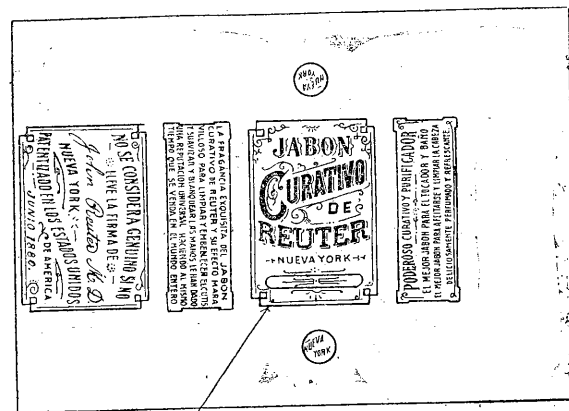 NUEVA
YORK
NO SE CONSIDERA GENUINO SI NO
LLEVE LA FIRMA DE
John Reuter M.D.
NUEVA YORK.
PATENTIZADO EN LOS ESTADOS UNIDOS
DE AMERICA
JUNIO 1880.
LA FRAGANCIA EXQUISITA DEL JABON
CURATIVO DE REUTER Y SU EFECTO MARA
VILLOSO PARA LIMPIAR Y EMBELLECER EL CUTIS
Y SUAVIZAR Y BLANQUEAR LAS MANOS LE HAN DADO
UNA REPUTACION UNIVERSAL HACIENDO AL MISMO
TIEMPO QUE SE VENDA EN EL MUNDO ENTERO
JABON
CURATIVO
DE
REUTER
NUEVA YORK
PODEROSO CURATIVO Y PURIFICADOR
EL MEJOR JABON PARA EL TOCADOR Y BAÑO
EL MEJOR JABON PARA AFEITARSE Y LIMPIAR LA CABEZA
DELICIOSAMENTE PERFUMADO Y
NUEVA
YORK